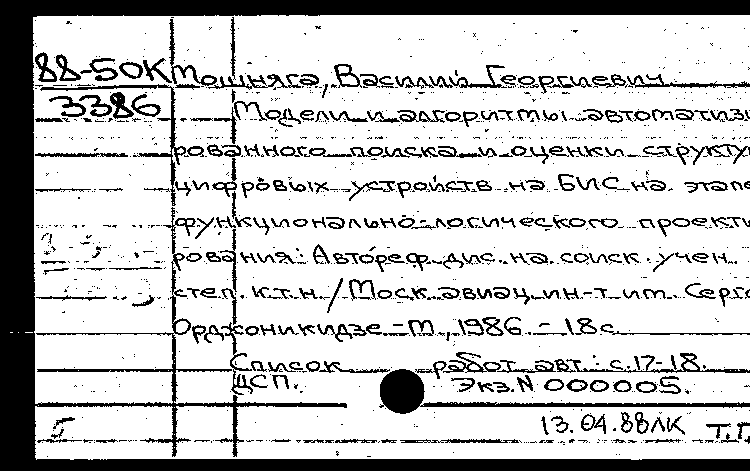 88-50К Мошняга, Василий Георгиевич
3386 Модели и алгоритмы автоматизи
рованного поиска и оценки структу
цифровых устройств на БИС на этапе
функционально-логического проекти
рования: Автореф. дис. на соиск. учен.
степ. к.т.н. / Моск. авиац. ин-т им. Серго
Орджоникидзе. - М., 1986. - 18 с.
Список работ авт.: с. 17-18.
ДСП. Экз. N 000005.
13.04.88 ЛК Т.П
5